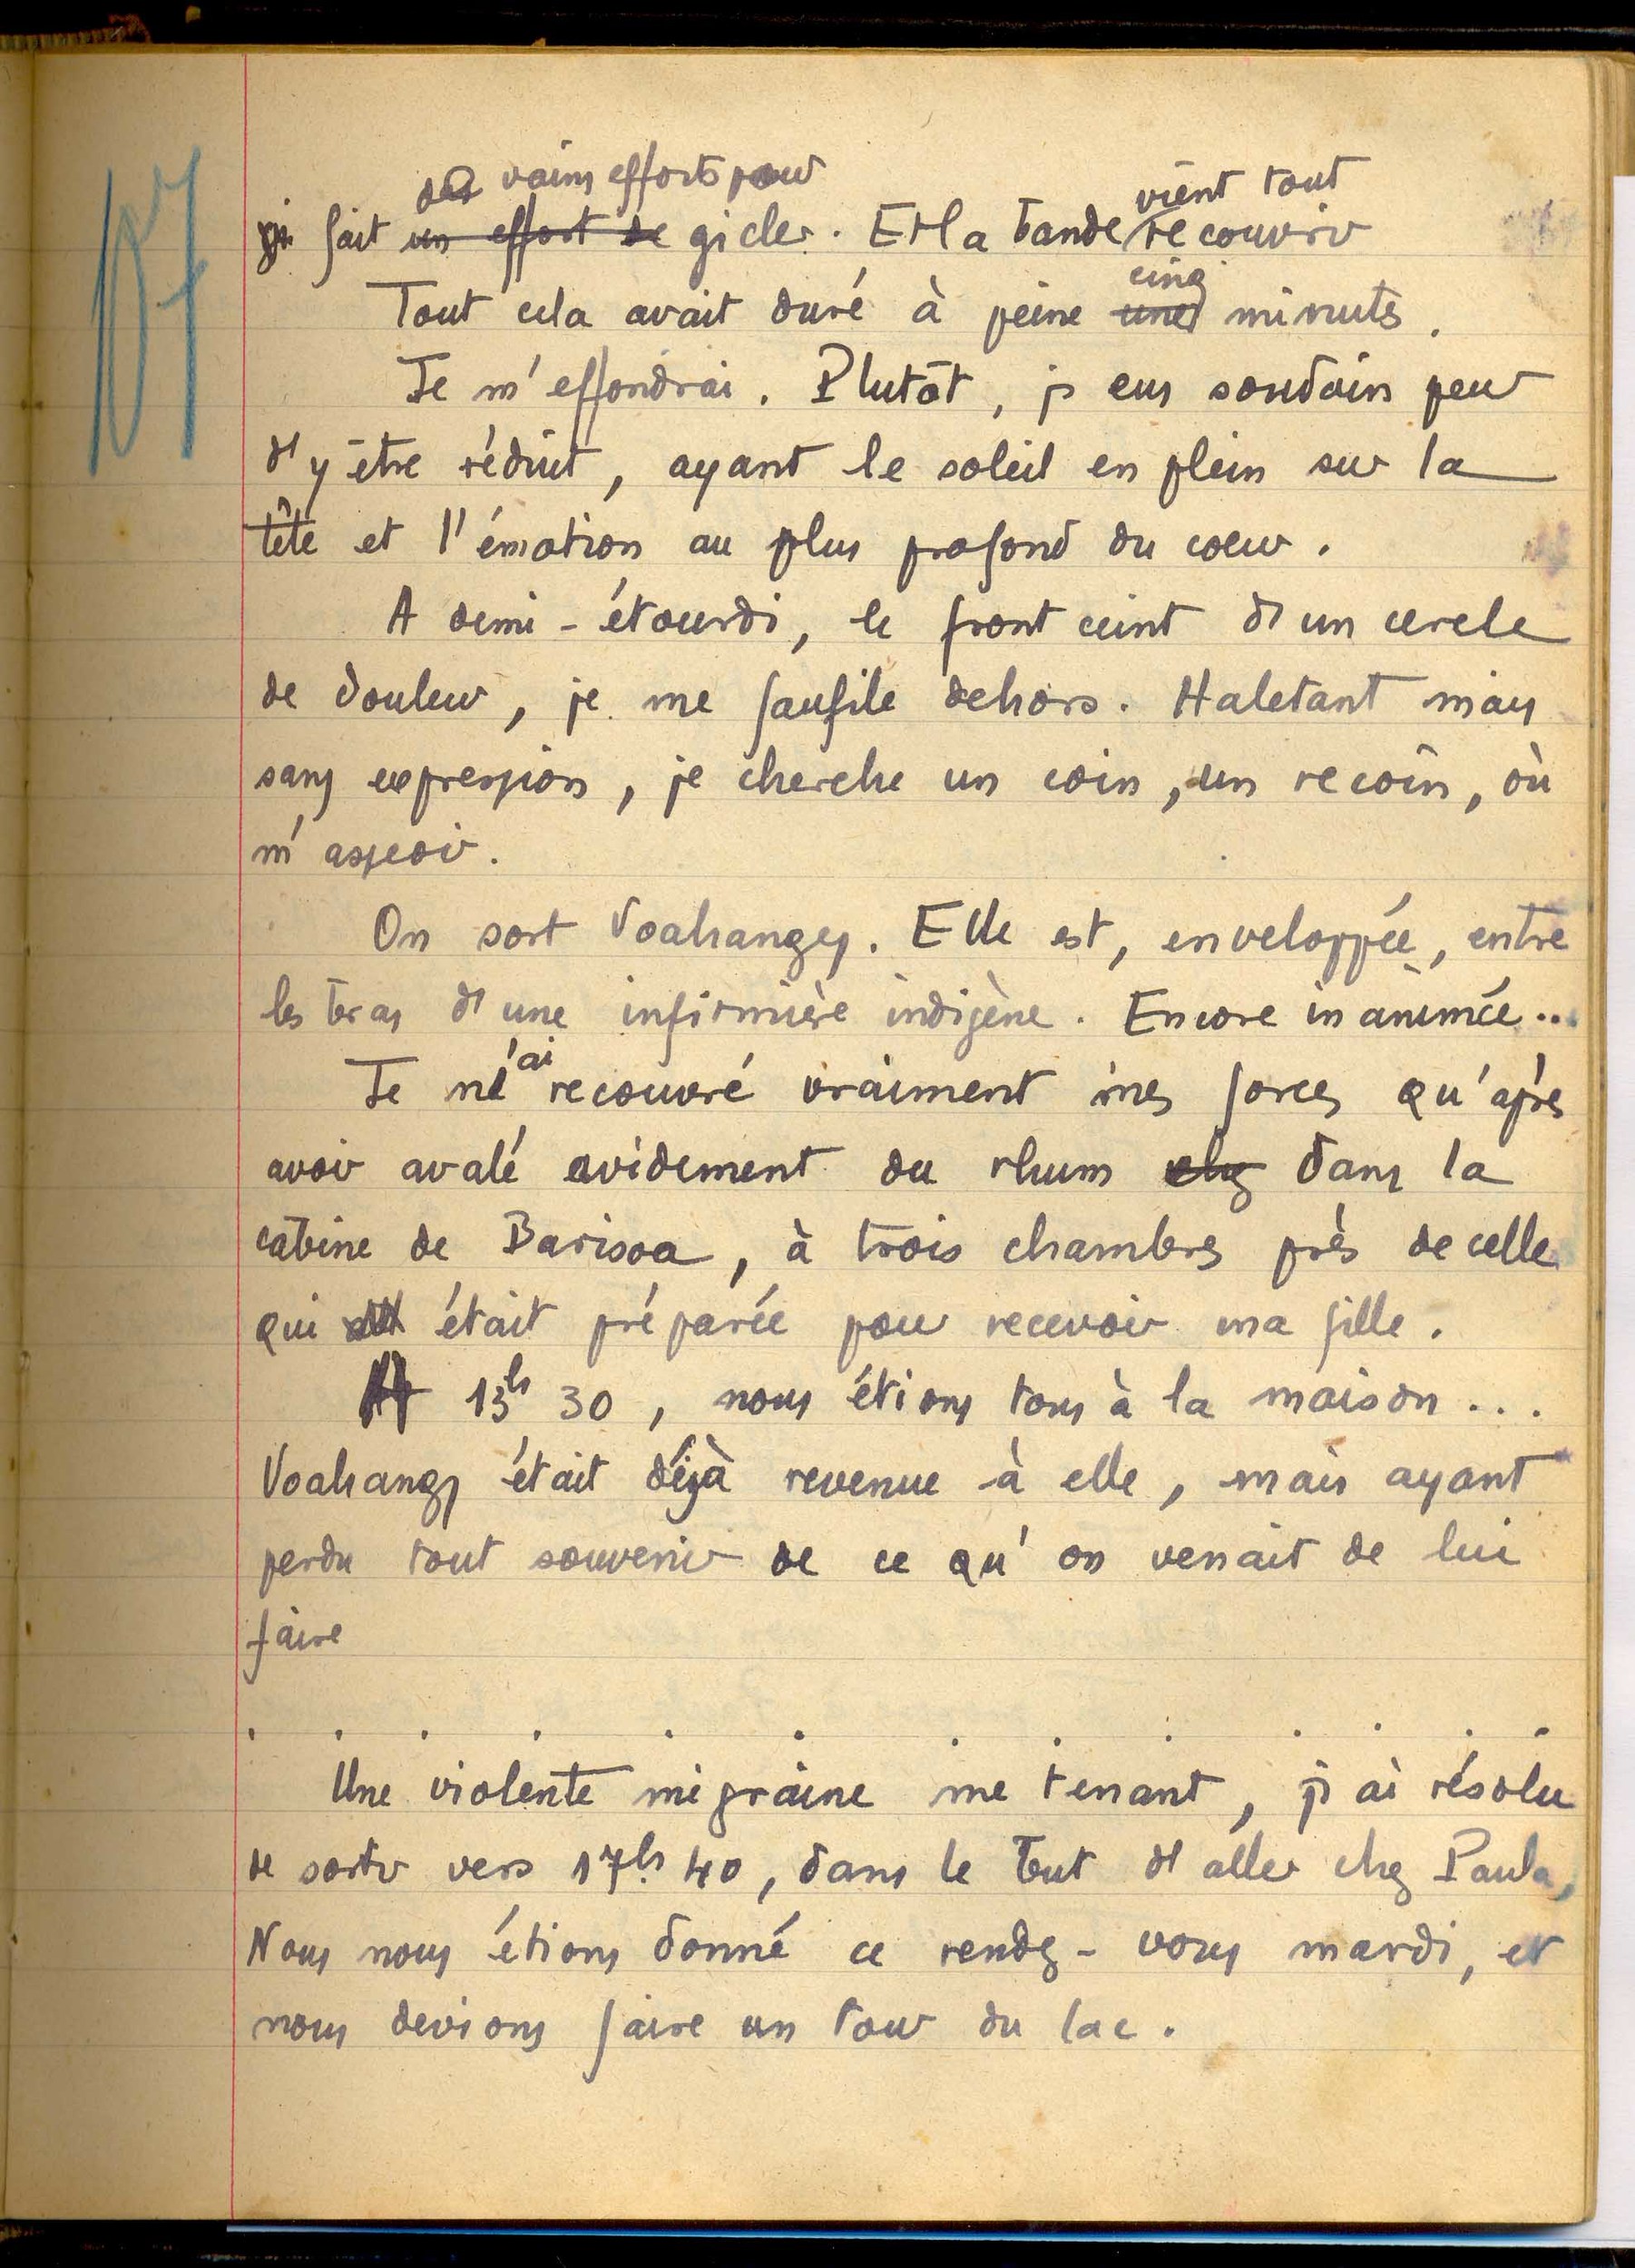 107
des vains efforts pour vient tout
qui fait un effort de gicler. Et la bande recouvrir
cinq
Tout cela avait duré à peine une minutes.
Je m'effondrai. Plutôt, j'eus soudain peur
d'y être réduit, ayant le soleil en plein sur la
tête et l'émotion au plus profond du coeur.
A demi-étourdi, le front ceint d'un cercle
de douleur, je me faufile dehors. Haletant mais
sans expression, je cherche un coin, un recoin, où
m'asseoir.
On sort Voahangy. Elle est, enveloppée, entre
les bras d'une infirmière indigène. Encore inanimée...
Je n'ai recouvré vraiment mes forces qu'après
avoir avalé avidement du rhum chez dans la
cabine de Barisoa, à trois chambres près de celle
qui était préparée pour recevoir ma fille.
A 13h 30, nous étions tous à la maison...
Voahangy était déjà revenue à elle, mais ayant
perdu tout souvenir de ce qu'on venait de lui
faire
. . . . . . . . . . . .
Une violente migraine me tenant, j'ai résolu
de sortir vers 17h. 40, dans le but d'aller chez Paula,
Nous nous étions donné ce rendez-vous mardi, et
nous devions faire un tour du lac.